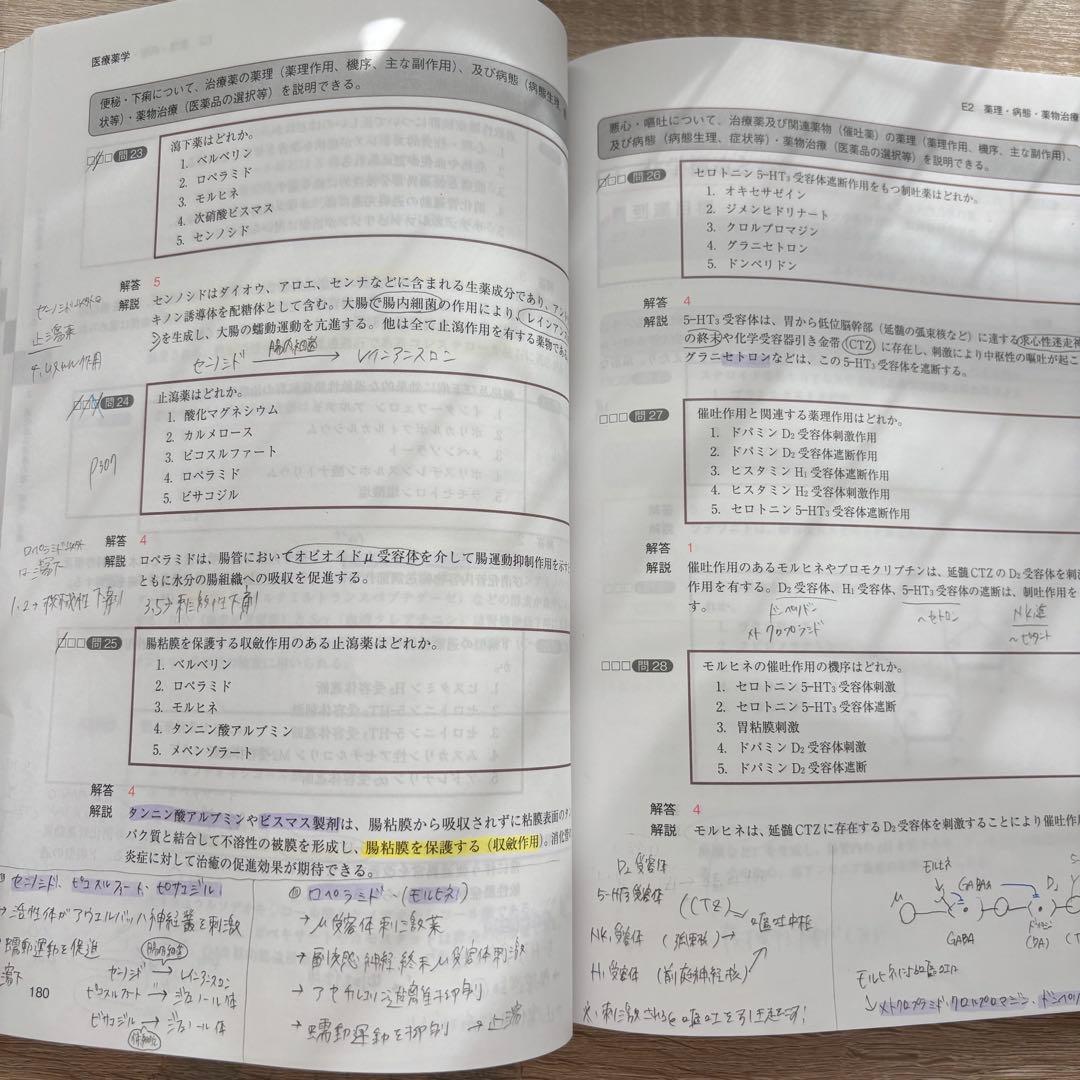 医療薬学
便秘・下痢について、治療薬の薬理（薬理作用、機序、主な副作用）、及び病態（病態生理、
状等）・薬物治療（医薬品の選択等）を説明できる。
□□□ 問23
瀉下薬はどれか。
1. ベルベリン
2. ロペラミド
3. モルヒネ
4. 次硝酸ビスマス
5. センノシド
解答 5
解説 センノシドはダイオウ、アロエ、センナなどに含まれる生薬成分であり、アン
キノン誘導体を配糖体として含む。大腸で腸内細菌の作用により、レインアン
を生成し、大腸の蠕動運動を亢進する。他は全て止瀉作用を有する薬物であ
センノシド以外は
止瀉薬
センノシド 腸内細菌 → レインアンスロン
□□□ 問24
止瀉薬はどれか。
1. 酸化マグネシウム
2. カルメロース
3. ピコスルファート
4. ロペラミド
5. ビサコジル
P307
解答 4
解説 ロペラミドは、腸管においてオピオイドμ受容体を介して腸運動抑制作用を示す
ともに水分の腸組織への吸収を促進する。
ロペラミド以外
は瀉下
1.2→機械性下剤 3.5→刺激性下剤
□□□ 問25
腸粘膜を保護する収斂作用のある止瀉薬はどれか。
1. ベルベリン
2. ロペラミド
3. モルヒネ
4. タンニン酸アルブミン
5. メペンゾラート
解答 4
解説 タンニン酸アルブミンやビスマス製剤は、腸粘膜から吸収されずに粘膜表面のタ
パク質と結合して不溶性の被膜を形成し、腸粘膜を保護する（収斂作用）。消化管の
炎症に対して治癒の促進効果が期待できる。
センノシド、ピコスルファート、ビサコジル
→活性体がアウエルバッハ神経叢を刺激
蠕動運動を促進
瀉下
腸内細菌
センノシド → レインアンスロン
ピコスルファート → ジフェノール体
ビサコジル → ジフェノール体
ロペラミド （モルヒネ）
→ μ受容体刺激薬
→ 副交感神経終末μ受容体刺激
→ アセチルコリン遊離抑制
→ 蠕動運動を抑制 → 止瀉
180
E2 薬理・病態・薬物治療
悪心・嘔吐について、治療薬及び関連薬物（催吐薬）の薬理（薬理作用、機序、主な副作用）、
及び病態（病態生理、症状等）・薬物治療（医薬品の選択等）を説明できる。
□□□ 問26
セロトニン 5-HT3 受容体遮断作用をもつ制吐薬はどれか。
1. オキセサゼイン
2. ジメンヒドリナート
3. クロルプロマジン
4. グラニセトロン
5. ドンペリドン
解答 4
解説 5-HT3 受容体は、胃から低位脳幹部（延髄の孤束核など）に達する求心性迷走神
の終末や化学受容器引き金帯（CTZ）に存在し、刺激により中枢性の嘔吐が起こ
グラニセトロンなどは、この5-HT3 受容体を遮断する。
□□□ 問27
催吐作用と関連する薬理作用はどれか。
1. ドパミン D2 受容体刺激作用
2. ドパミン D2 受容体遮断作用
3. ヒスタミン H1 受容体遮断作用
4. ヒスタミン H2 受容体刺激作用
5. セロトニン 5-HT3 受容体遮断作用
解答 1
解説 催吐作用のあるモルヒネやブロモクリプチンは、延髄 CTZ の D2 受容体を刺激
作用を有する。D2 受容体、H1 受容体、5-HT3 受容体の遮断は、制吐作用を
す。
ドンペリドン
メトクロプラミド
〜セトロン
□□□ 問28
モルヒネの催吐作用の機序はどれか。
1. セロトニン 5-HT3 受容体刺激
2. セロトニン 5-HT3 受容体遮断
3. 胃粘膜刺激
4. ドパミン D2 受容体刺激
5. ドパミン D2 受容体遮断
解答 4
解説 モルヒネは、延髄 CTZ に存在する D2 受容体を刺激することにより催吐作用
D2受容体
5-HT3受容体 （CTZ）
NK1受容体 （孤束核）→ 嘔吐中枢
H1受容体 （前庭神経核）
刺激されると嘔吐を引き起こす!
モルヒネ
GABAA
μ
GABA
(DA)
モルヒネによる嘔吐は
↓メトクロプラミド、クロルプロマジン、ドンペリ